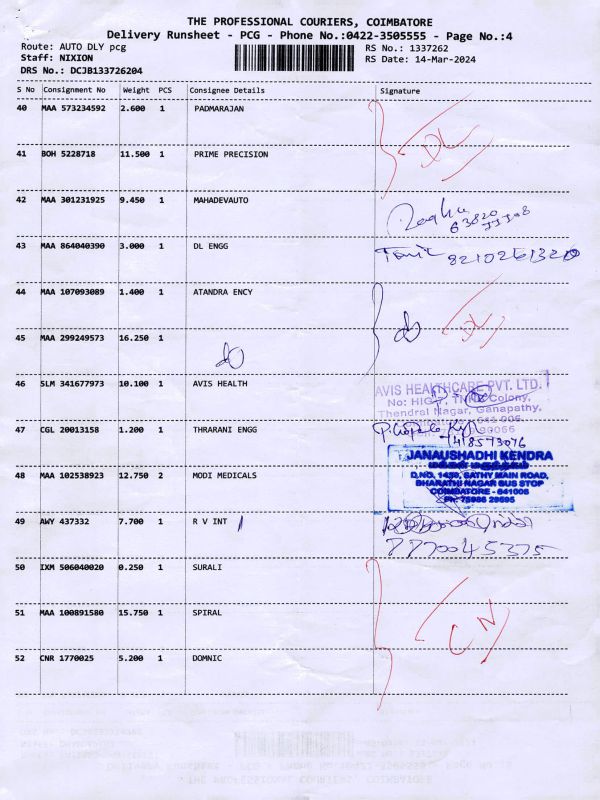 THE PROFESSIONAL COURIERS, COIMBATORE
Delivery Runsheet - PCG - Phone No.:0422-3505555 - Page No.:4
Route: AUTO DLY pcg RS No.: 1337262
Staff: NIXION RS Date: 14-Mar-2024
DRS No.: DCJB133726204
S No Consignment No Weight PCS Consignee Details Signature
40 MAA 573234592 2.600 1 PADMARAJAN
DL
41 BOH 5228718 11.500 1 PRIME PRECISION
42 MAA 301231925 9.450 1 MAHADEVAUTO
Raghu
43 MAA 864040390 3.000 1 DL ENGG
8210261320
44 MAA 107093089 1.400 1 ATANDRA ENCY
do DL
45 MAA 299249573 16.250 1
do
46 SLM 341677973 10.100 1 AVIS HEALTH
AVIS HEALTHCARE PVT. LTD.
Colony,
Thendral Nagar, Ganapathy,
47 CGL 20013158 1.200 1 THRARANI ENGG
7418573076
JANAUSHADHI KENDRA
மக்கள் மருந்தகம்
48 MAA 102538923 12.750 2 MODI MEDICALS
D.NO. 1439, SATHY MAIN ROAD,
BHARATHI NAGAR BUS STOP
COIMBATORE - 641006
49 AWY 437332 7.700 1 R V INT
8770045375
50 IXM 506040020 0.250 1 SURALI
51 MAA 100891580 15.750 1 SPIRAL
CN
52 CNR 1770025 5.200 1 DOMNIC